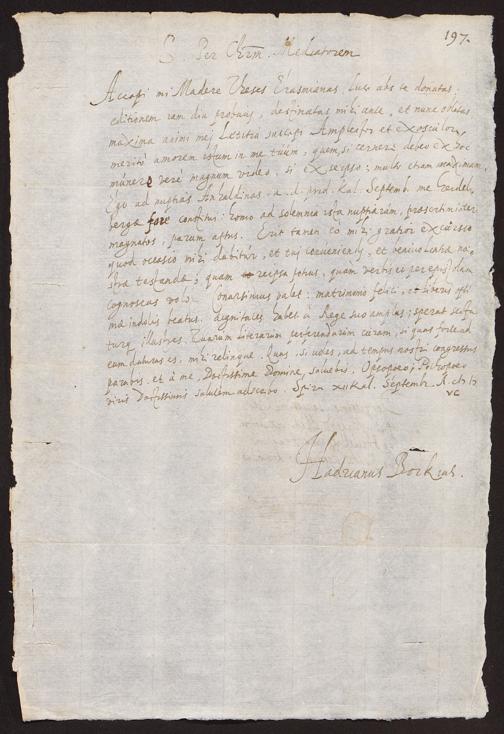 197.
S. Per Chrm. Mediatorem
Accepi mi Madere Uxeses Erasmianas, luci abs te donatas.
editionem iam diu probavi, destinatas mihi ante, et nunc oblatas
maxima animi mei Letitia suscepi Amplector et exosculor,
meritò amorem istum in me tuum, quem, si cernere debeo ex hoc
munere verè magnum video, si ex seipso; multo etiam maximum.
Ego ad nuptias Anhaldinas a. d. prid. Kal. Septemb. me Heidel-
berga fore constitui: homo ad solemnia ista nuptiarum, praesertim inter
magnates, parum aptus. Erit tamen eo mihi gratior excursio
quod occasio mihi dabitur, et tui conveniendi, et benivolentia no-
stra testanda; quam reipsa potius, quam verbis et per epistolam
cognoscas volo. valet: matrimonio felici, et liberis opti-
ma indolis beatus. dignitates habet à Rege suo amplas; sperat
illustres. Tuarum literarum perferendarum curam, si quas fortè ad
eum daturus es, mihi relinque. Quas, si voles, ad tempus nostri congressus
parabis. et à me, Doctissime Domine, salvebis. Opsopoeo, Pithopoeo
viris Doctissimis salutem adscribo. Spira XII Kal. Septembr. A.
VC
Hadrianus Borkius.